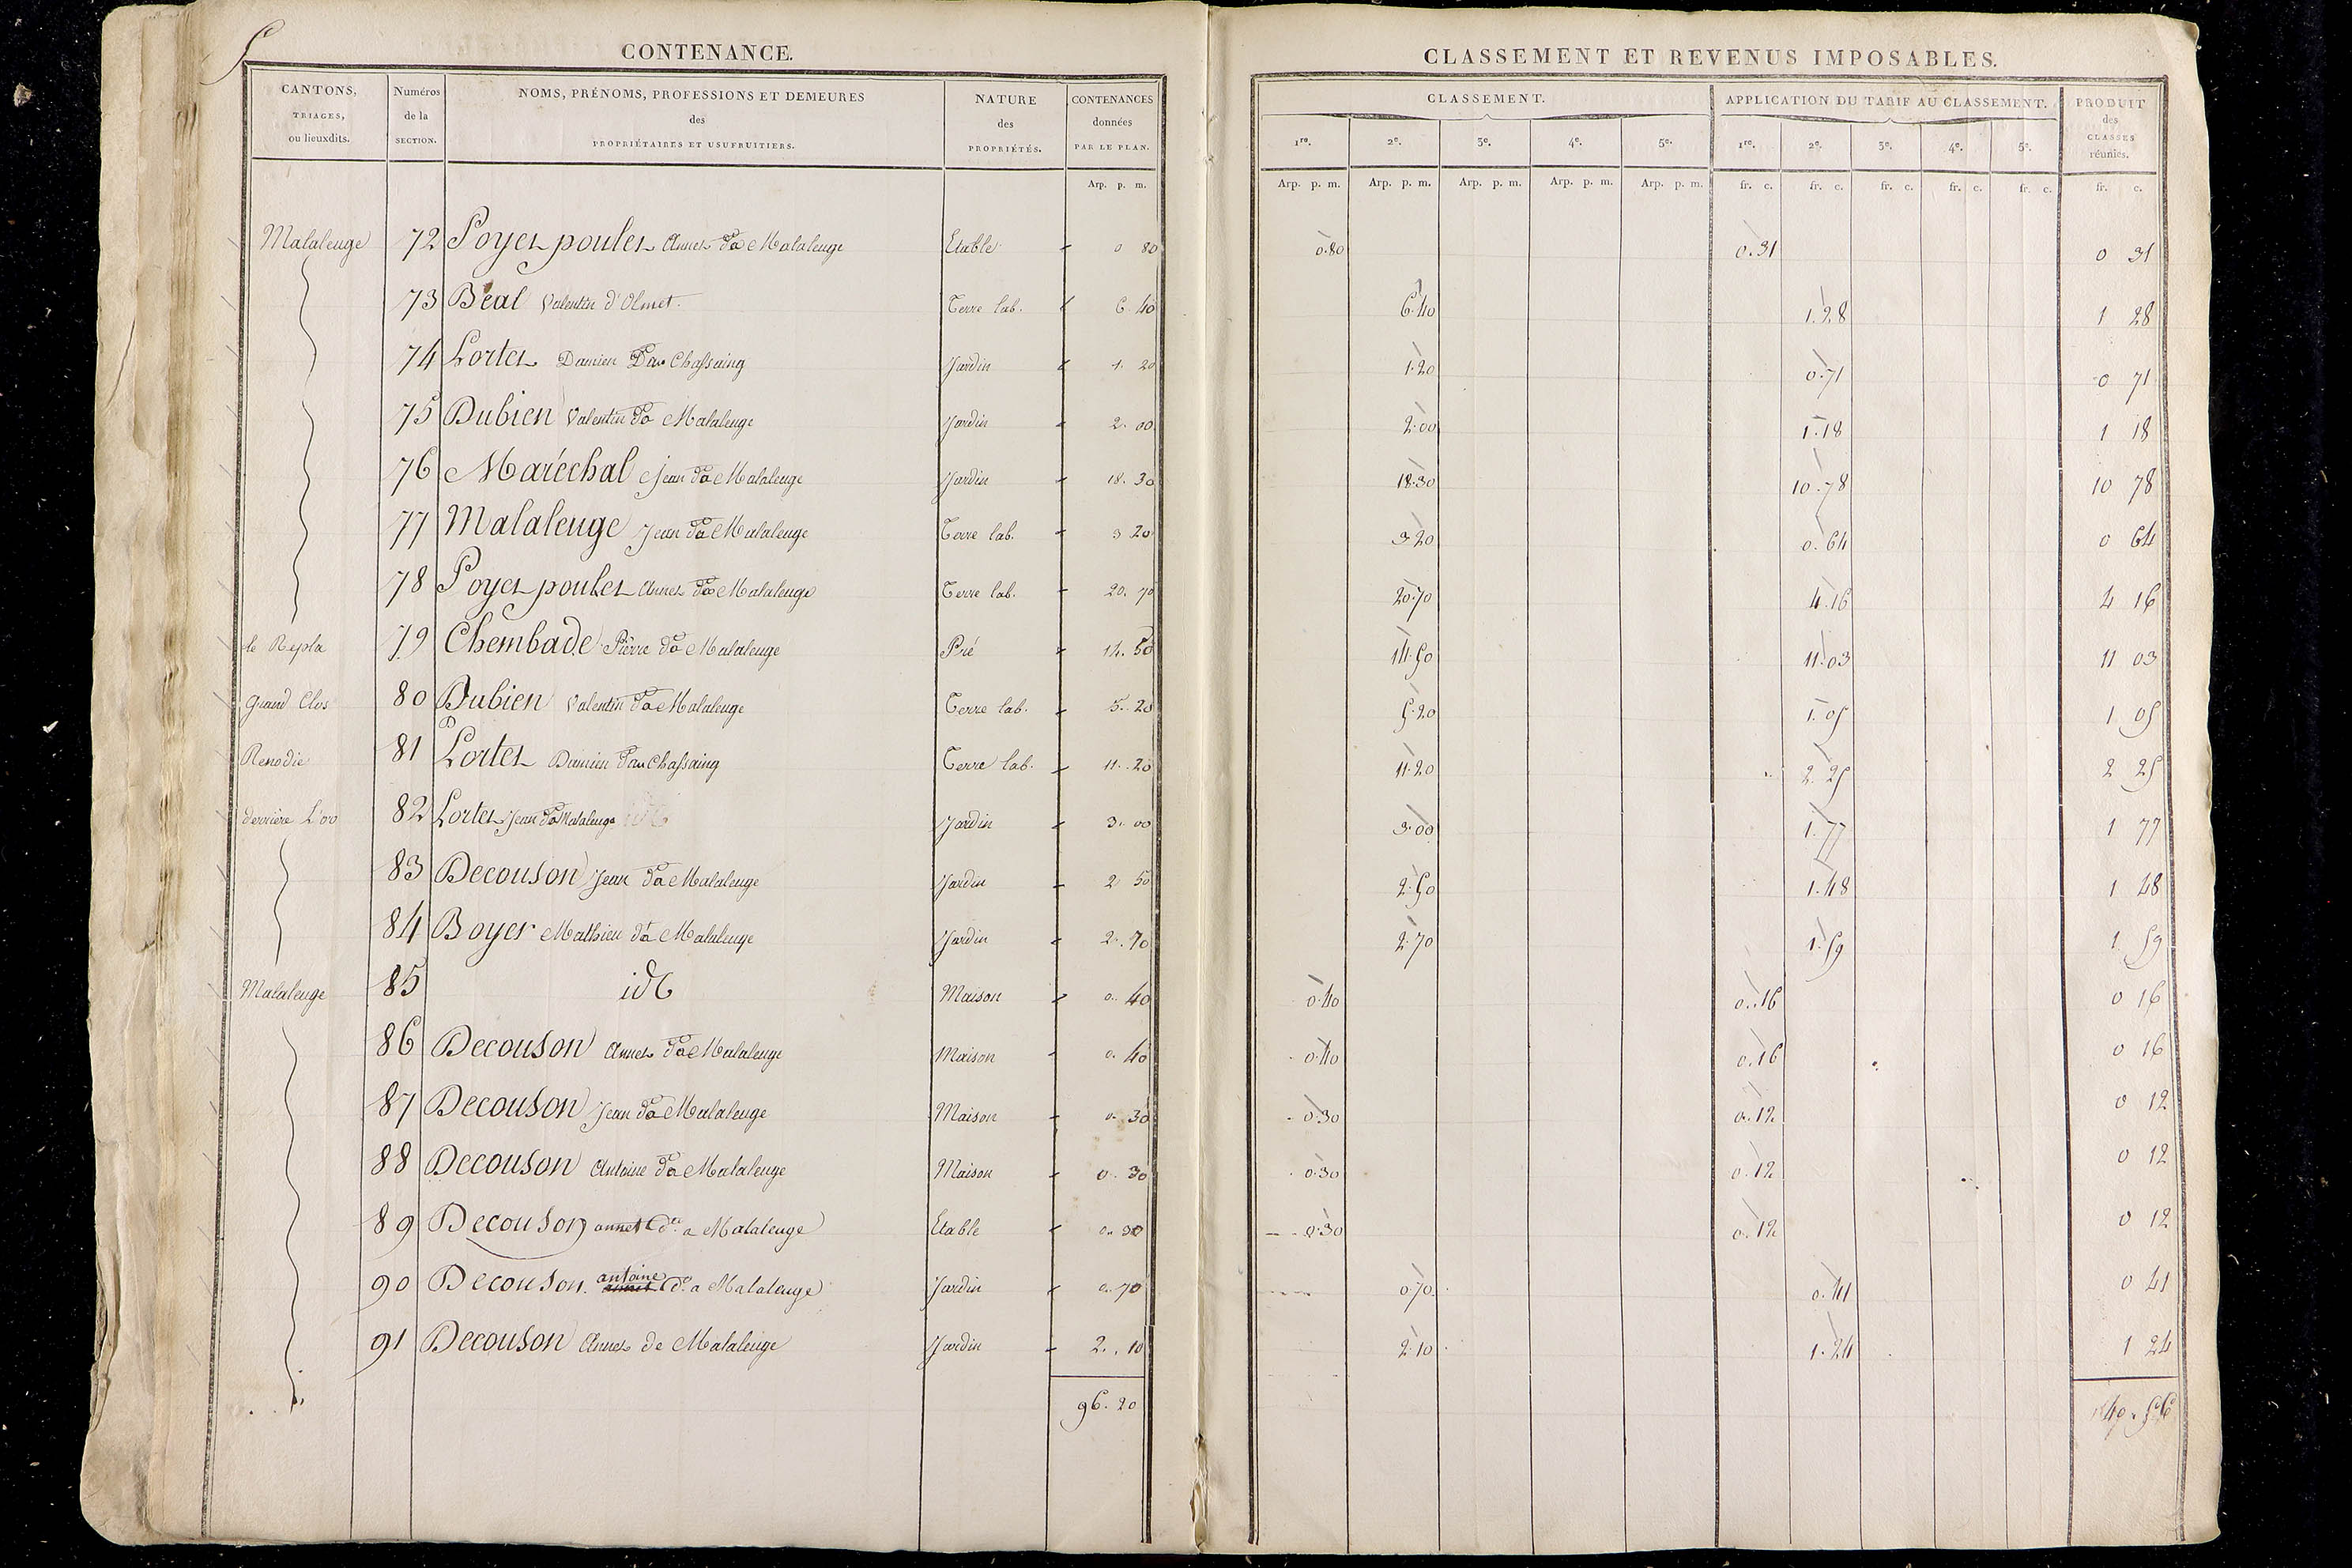 CONTENANCE.
CANTONS, TRIAGES, ou lieuxdits.
Numéros de la SECTION.
NOMS, PRÉNOMS, PROFESSIONS ET DEMEURES des PROPRIÉTAIRES ET USUFRUITIERS.
NATURE des PROPRIÉTÉS.
CONTENANCES données PAR LE PLAN.
Arp. p. m.
CLASSEMENT ET REVENUS IMPOSABLES.
CLASSEMENT.
APPLICATION DU TARIF AU CLASSEMENT.
PRODUIT des CLASSES réunies.
1re. 2e. 3e. 4e. 5e. 1re. 2e. 3e. 4e. 5e.
Arp. p. m. Arp. p. m. Arp. p. m. Arp. p. m. Arp. p. m. fr. c. fr. c. fr. c. fr. c. fr. c. fr. c.
Malaleuge 72 Poyet poulet Annet do a Malaleuge Etable 0 80 0.80 0.31 0 31
73 Béal Valentin d'Olmet Terre lab. 6 40 6.40 1.28 1 28
74 Lortet Damien Chassaing Jardin 1. 20 1.20 0.71 0 71
75 Dubien Valentin do a Malaleuge Jardin 2. 00 2.00 1.18 1 18
76 Maréchal Jean do a Malaleuge Jardin 18. 30 18.30 10.78 10 78
77 Malaleuge Jean do a Malaleuge Terre lab. 3 20 3 20 0.64 0 64
78 Poyet poulet Annet do a Malaleuge Terre lab. 20. 70 20.70 4.16 4 16
le Repla 79 Chembade Pierre do a Malaleuge Pré 14. 50 14.50 11.03 11 03
grand Clos 80 Dubien Valentin do a Malaleuge Terre lab. 5. 20 5.20 1.05 1 05
Renodie 81 Lortet Damien Chassaing Terre lab. 11. 20 11.20 2.25 2 25
derrière L'oro 82 Lortet Jean do a Malaleuge Jardin 3. 00 3.00 1.77 1 77
83 Decouson Jean do a Malaleuge Jardin 2 50 2.50 1.48 1 48
84 Boyer Mathieu do a Malaleuge Jardin 2. 70 2.70 1.59 1 59
Malaleuge 85 id Maison 0. 40 0.40 0.16 0 16
86 Decouson Annet do a Malaleuge Maison 0. 40 0.40 0.16 0 16
87 Decouson Jean do a Malaleuge Maison 0. 30 0.30 0.12 0 12
88 Decouson Antoine do a Malaleuge Maison 0. 30 0.30 0.12 0 12
89 Decouson annet do a Malaleuge Etable 0. 30 0.30 0.12 0 12
90 Decouson antoine annet do a Malaleuge Jardin 0. 70 0.70 0.41 0 41
91 Decouson Annet de Malaleuge Jardin 2. 10 2.10 1.24 1 24
96. 20 40. 56